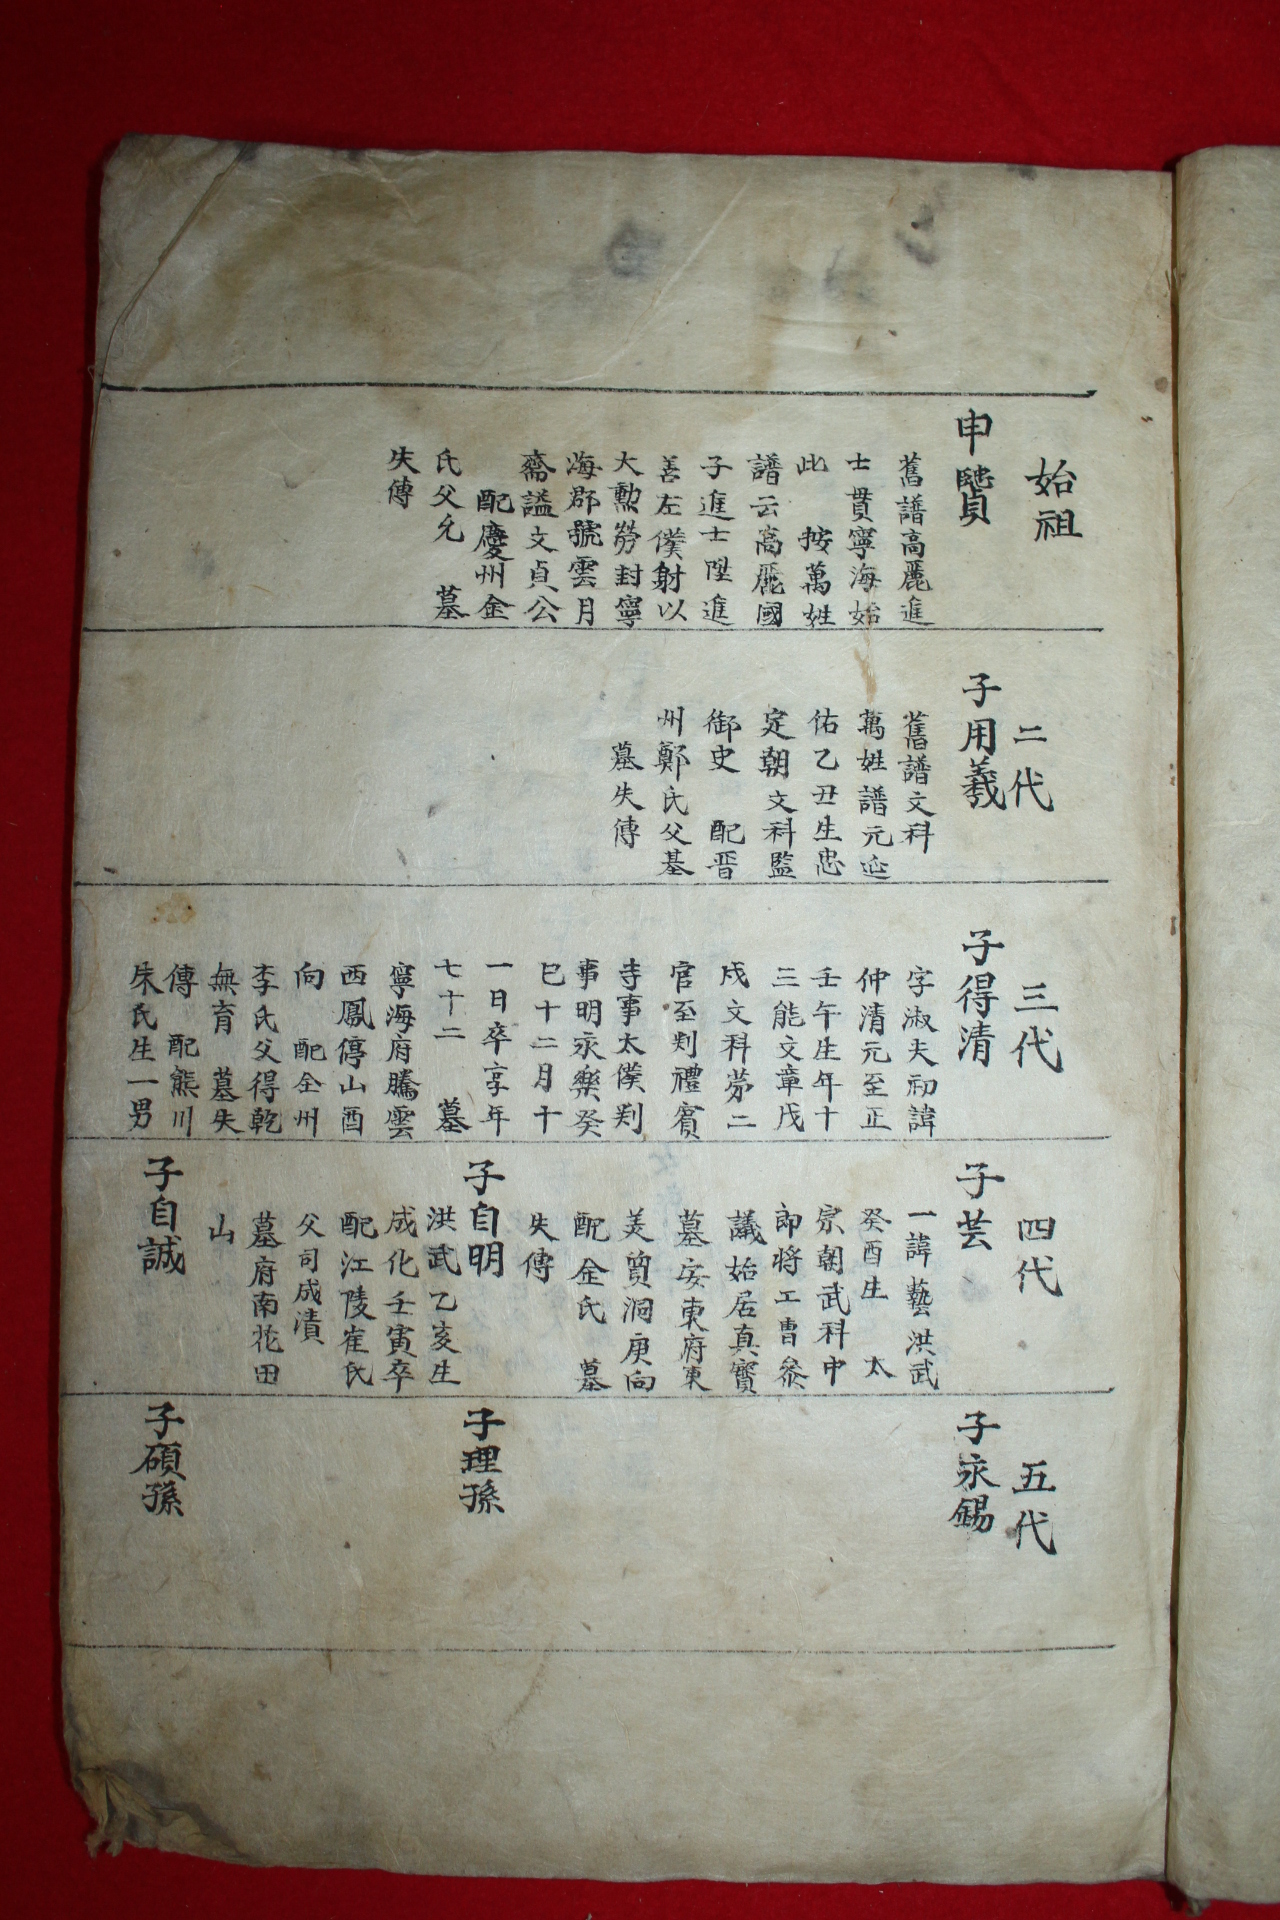 始祖
申賢
舊譜高麗進
士貫寧海始
此 按萬姓
譜云高麗國
子進士陞進
善左僕射以
大勲勞封寧
海郡號雲月
齋謚文貞公
配慶州金
氏父允 墓
失傳
二代
子用羲
舊譜文科
萬姓譜元延
佑乙丑生忠
定朝文科監
御史 配晋
州鄭氏父基
墓失傳
三代
子得清
字淑夫初諱
仲清元至正
壬午生年十
三能文章戊
戌文科第二
官至判禮賓
寺事太僕判
事明永樂癸
巳十二月十
一日卒享年
七十二 墓
寧海府騰雲
西鳳停山酉
向 配全州
李氏父得乾
無育 墓失
傳 配熊川
朱氏生一男
四代
子芸
一諱藝洪武
癸酉生 太
宗朝武科中
郎將工曹叅
議始居真寶
墓安東府東
美質洞庚向
配金氏 墓
失傳
子自明
洪武乙亥生
成化壬寅卒
配江陵崔氏
父司成漬
墓府南花田
山
子自誠
五代
子永錫
子理孫
子碩孫